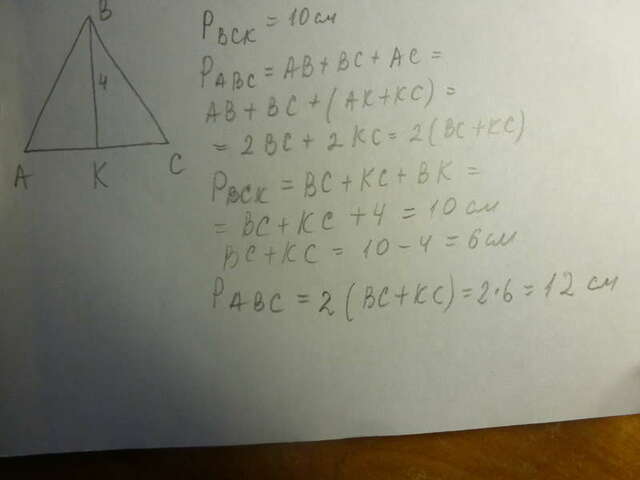 B
4
A K C
P_BCK = 10 см
P_ABC = AB + BC + AC =
AB + BC + (AK + KC) =
= 2BC + 2KC = 2(BC + KC)
P_BCK = BC + KC + BK =
= BC + KC + 4 = 10 см
BC + KC = 10 - 4 = 6 см
P_ABC = 2(BC + KC) = 2·6 = 12 см